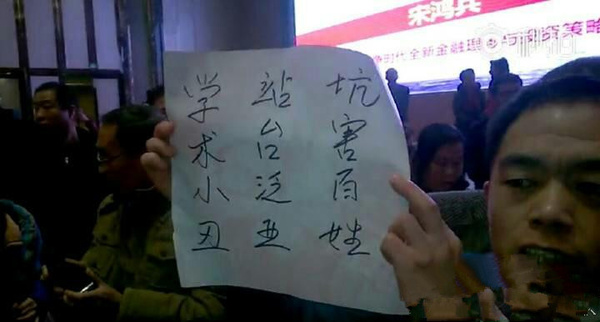 宋鸿兵
时代全新金融理 与投资策略
学术小丑
站台泛亚
坑害百姓